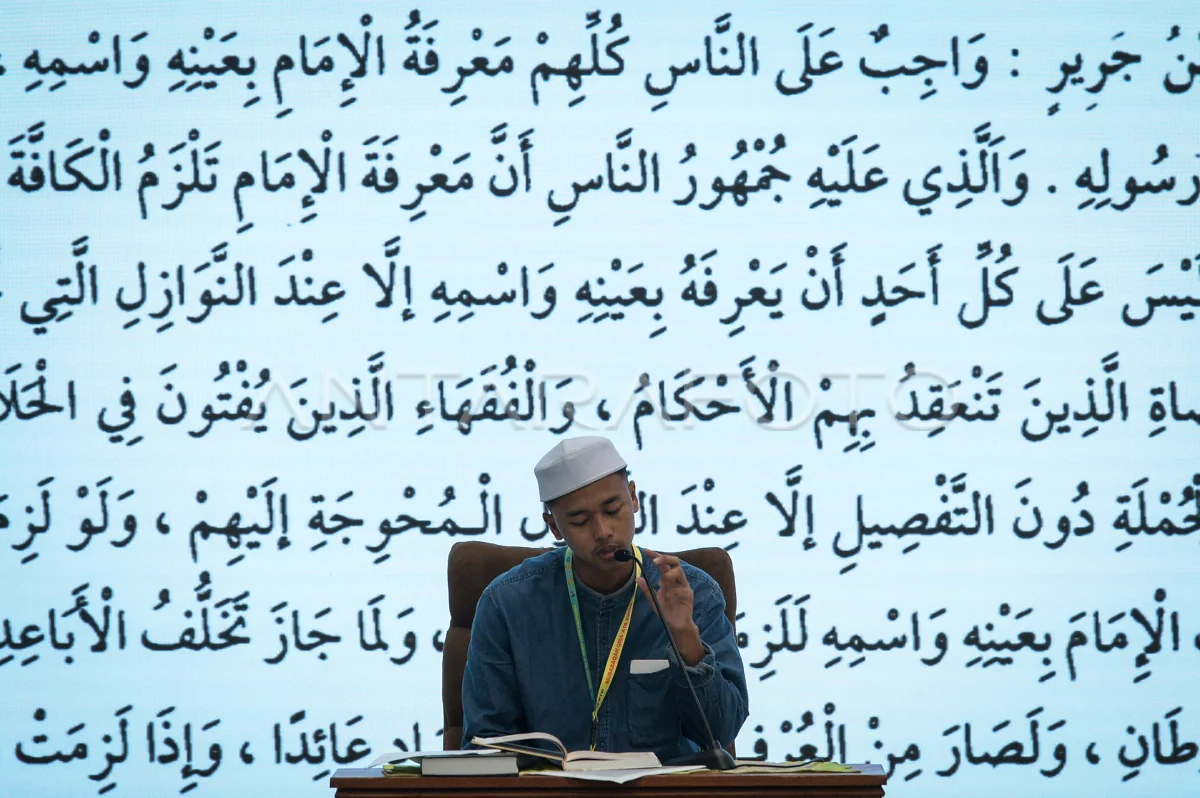 جَرِيرٍ : وَاجِبٌ عَلَى النَّاسِ كُلِّهِمْ مَعْرِفَةُ الْإِمَامِ بِعَيْنِهِ وَاسْمِهِ
وَالَّذِي عَلَيْهِ جُمْهُورُ النَّاسِ أَنَّ مَعْرِفَةَ الْإِمَامِ تَلْزَمُ الْكَافَّةَ
عَلَى كُلِّ أَحَدٍ أَنْ يَعْرِفَهُ بِعَيْنِهِ وَاسْمِهِ إلَّا عِنْدَ النَّوَازِلِ الَّتِي
الَّذِينَ تَنْعَقِدُ بِهِمْ الْأَحْكَامُ ، وَالْفُقَهَاءِ الَّذِينَ يُفْتُونَ فِي
دُونَ التَّفْصِيلِ إلَّا عِنْدَ الْمُحْوِجَةِ إلَيْهِمْ ، وَلَوْ
الْإِمَامَ بِعَيْنِهِ وَاسْمِهِ ، وَلَمَا جَازَ تَخَلُّفُ
، وَلَصَارَ مِنْ عَائِدًا ، وَإِذَا لَزِمَتْ
ANTARAFOTO